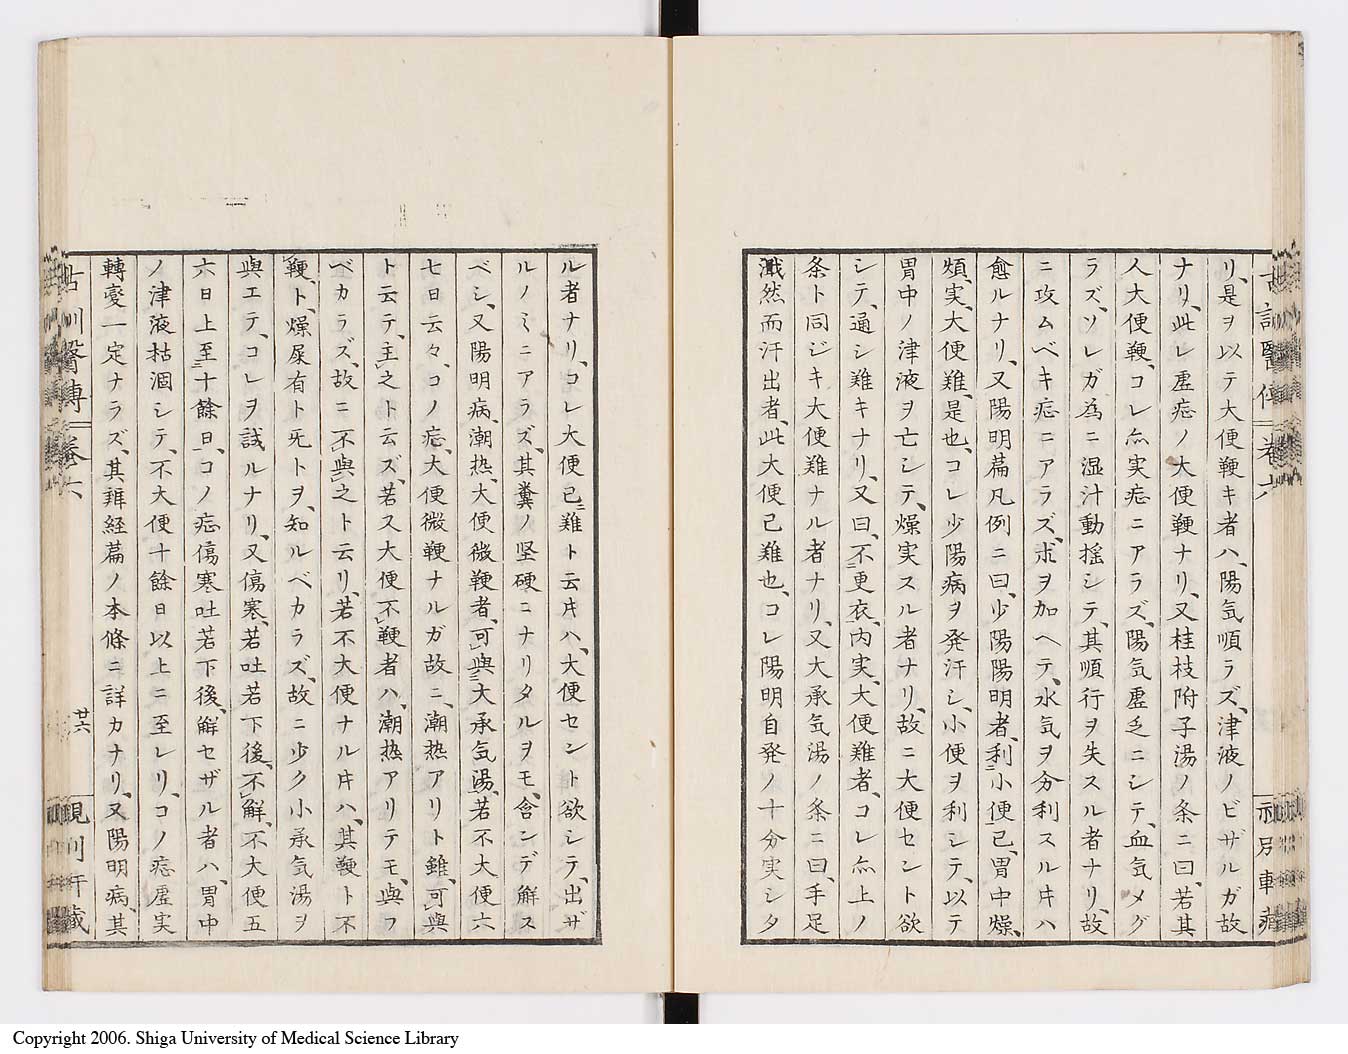 リ、是ヲ以テ大便鞕キ者ハ、陽気順ラズ、津液ノビザルガ故
ナリ、此レ虚症ノ大便鞕ナリ、又桂枝附子湯ノ条ニ曰、若其
人大便鞕、コレ亦実症ニアラズ、陽気虚乏ニシテ、血気メグ
ラズ、ソレガ為ニ湿汁動揺シテ、其順行ヲ失スル者ナリ、故
ニ攻ムベキ症ニアラズ、朮ヲ加ヘテ、水気ヲ分利スル片ハ
愈ルナリ、又陽明篇凡例ニ曰、少陽陽明者、利小便已、胃中燥、
煩、実、大便難、是也、コレ少陽病ヲ発汗シ、小便ヲ利シテ、以テ
胃中ノ津液ヲ亡シテ、燥実スル者ナリ、故ニ大便セント欲
シテ、通シ難キナリ、又曰、不更衣、内実、大便難者、コレ亦上ノ
条ト同ジキ大便難ナル者ナリ、又大承気湯ノ条ニ曰、手足
濈然而汗出者、此大便已難也、コレ陽明自発ノ十分実シタ
ル者ナリ、コレ大便已ニ難ト云片ハ、大便セント欲シテ、出ザ
ルノミニアラズ、其糞ノ坚硬ニナリタルヲモ、含ンデ解ス
ベシ、又陽明病、潮热、大便微鞕者、可與大承気湯、若不大便六
七日云々、コノ症、大便微鞕ナルガ故ニ、潮热アリト雖、可與
ト云テ、主之ト云ズ、若ス大便不鞕者ハ、潮热アリテモ、與フ
ベカラズ、故ニ不與之ト云リ、若不大便ナル片ハ、其鞕ト不
鞕、ト、燥屎有ト旡トヲ、知ルベカラズ、故ニ少ク小承気湯ヲ
與エテ、コレヲ試ルナリ、又傷寒、若吐若下後、不解、不大便五
六日上至十餘日、コノ症傷寒吐若下後、解セザル者ハ、胃中
ノ津液枯涸シテ、不大便十餘日以上ニ至レリ、コノ症虚実
轉変一定ナラズ、其辨経篇ノ本條ニ詳カナリ、又陽明病、其
古訓醫傳 巻六
廿六
Copyright 2006. Shiga University of Medical Science Library